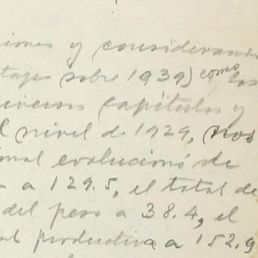 ciones y considerando
taje sobre 1939) como los
diversos capítulos y
el nivel de 1929, nos
onal evolucionó de
a 129.5, el total de
del peso a 38.4, el
al productiva a 152.9